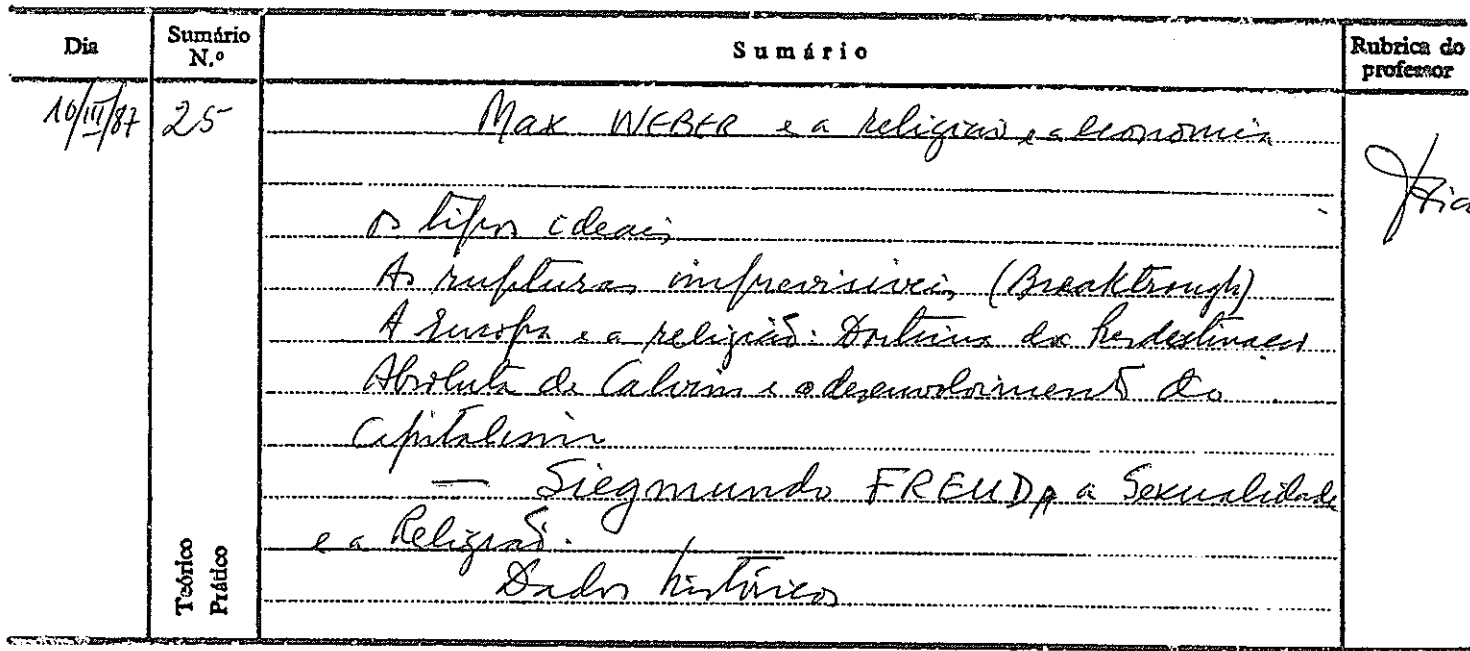 Dia Sumário N.º Sumário Rubrica do professor
10/III/87 25 Max WEBER e a religião, a economia
os tipos ideais
As rupturas imprevisíveis (Breaktrough)
A Europa e a religião: Doutrina da Perdestinação
Absoluta de Calvino e o desenvolvimento do
Capitalismo
— Siegmundo FREUD, a Sexualidade
e a Religião.
Dados históricos
Teórico
Prático